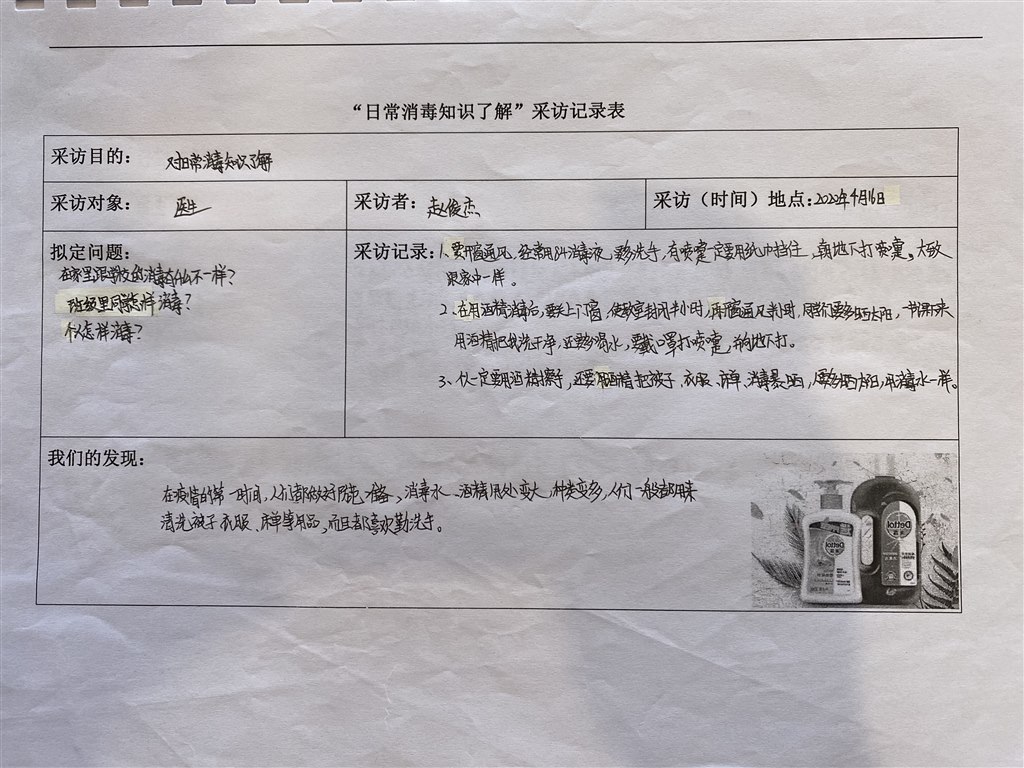 “日常消毒知识了解”采访记录表
采访目的： 对日常消毒知识了解
采访对象： 医生
采访者： 赵俊杰
采访（时间）地点:2020年4月16日
拟定问题：
在家里跟学校的消毒有什么不一样？
班级里同怎样消毒？
个怎样消毒？
采访记录：1、要开窗通风，经常用84消毒液，要多洗手，有喷嚏一定要用纸巾挡住，朝地下打喷嚏。大致
跟家中一样。
2、在用酒精消毒后，要关上门窗，使教室封闭半小时，再开窗通风半小时，同学们要多晒太阳，书
用酒精把干净，还要多喝水，要戴口罩打喷嚏，向地下打。
3、一定要用酒精擦手，还要用酒精把被子、衣服、床单、消毒暴晒，要多晒太阳，用消毒水一样。
我们的发现：
在疫情的第一时间，人们都做好防范准备，消毒水、酒精用处变大，种类变多，人们一般都用来
清洗被子、衣服、床单等用品，而且都喜欢勤洗手。
Dettol
Dettol